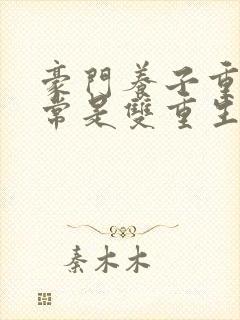 豪門養子重
常是雙重生
秦木木